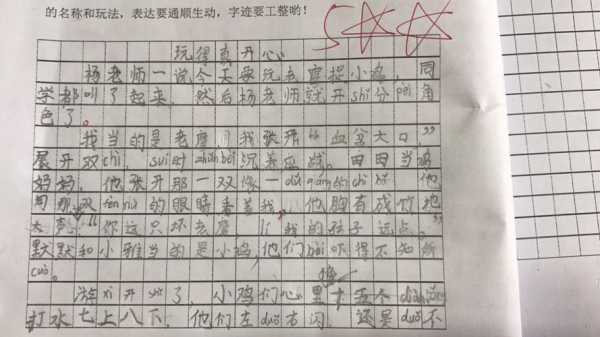 的名称和玩法，表达要通顺生动，字迹要工整哟！
玩得真开心
杨老师一说今天要玩老鹰捉小鸡，同
学都叫了起来，然后杨老师就开shǐ分pèi角
色了。
我当的是老鹰，我张开“血盆大口”
展开双chì，suí shí zhǔn bèi 迎战。田田当鸡
妈妈，他张开那一双像一 chì bǎng，他
用那双fèn nù的眼睛看着我，他胸有成竹地
大声：“你这只坏老鹰，lí我的孩子远点。”
默默和小雅当的是小鸡，他们 吓得不知所
cuò。
游xì开shǐ了，小鸡们心里十五个diào tǒng
打水七上八下，他们左duǒ右闪，还是duǒ不